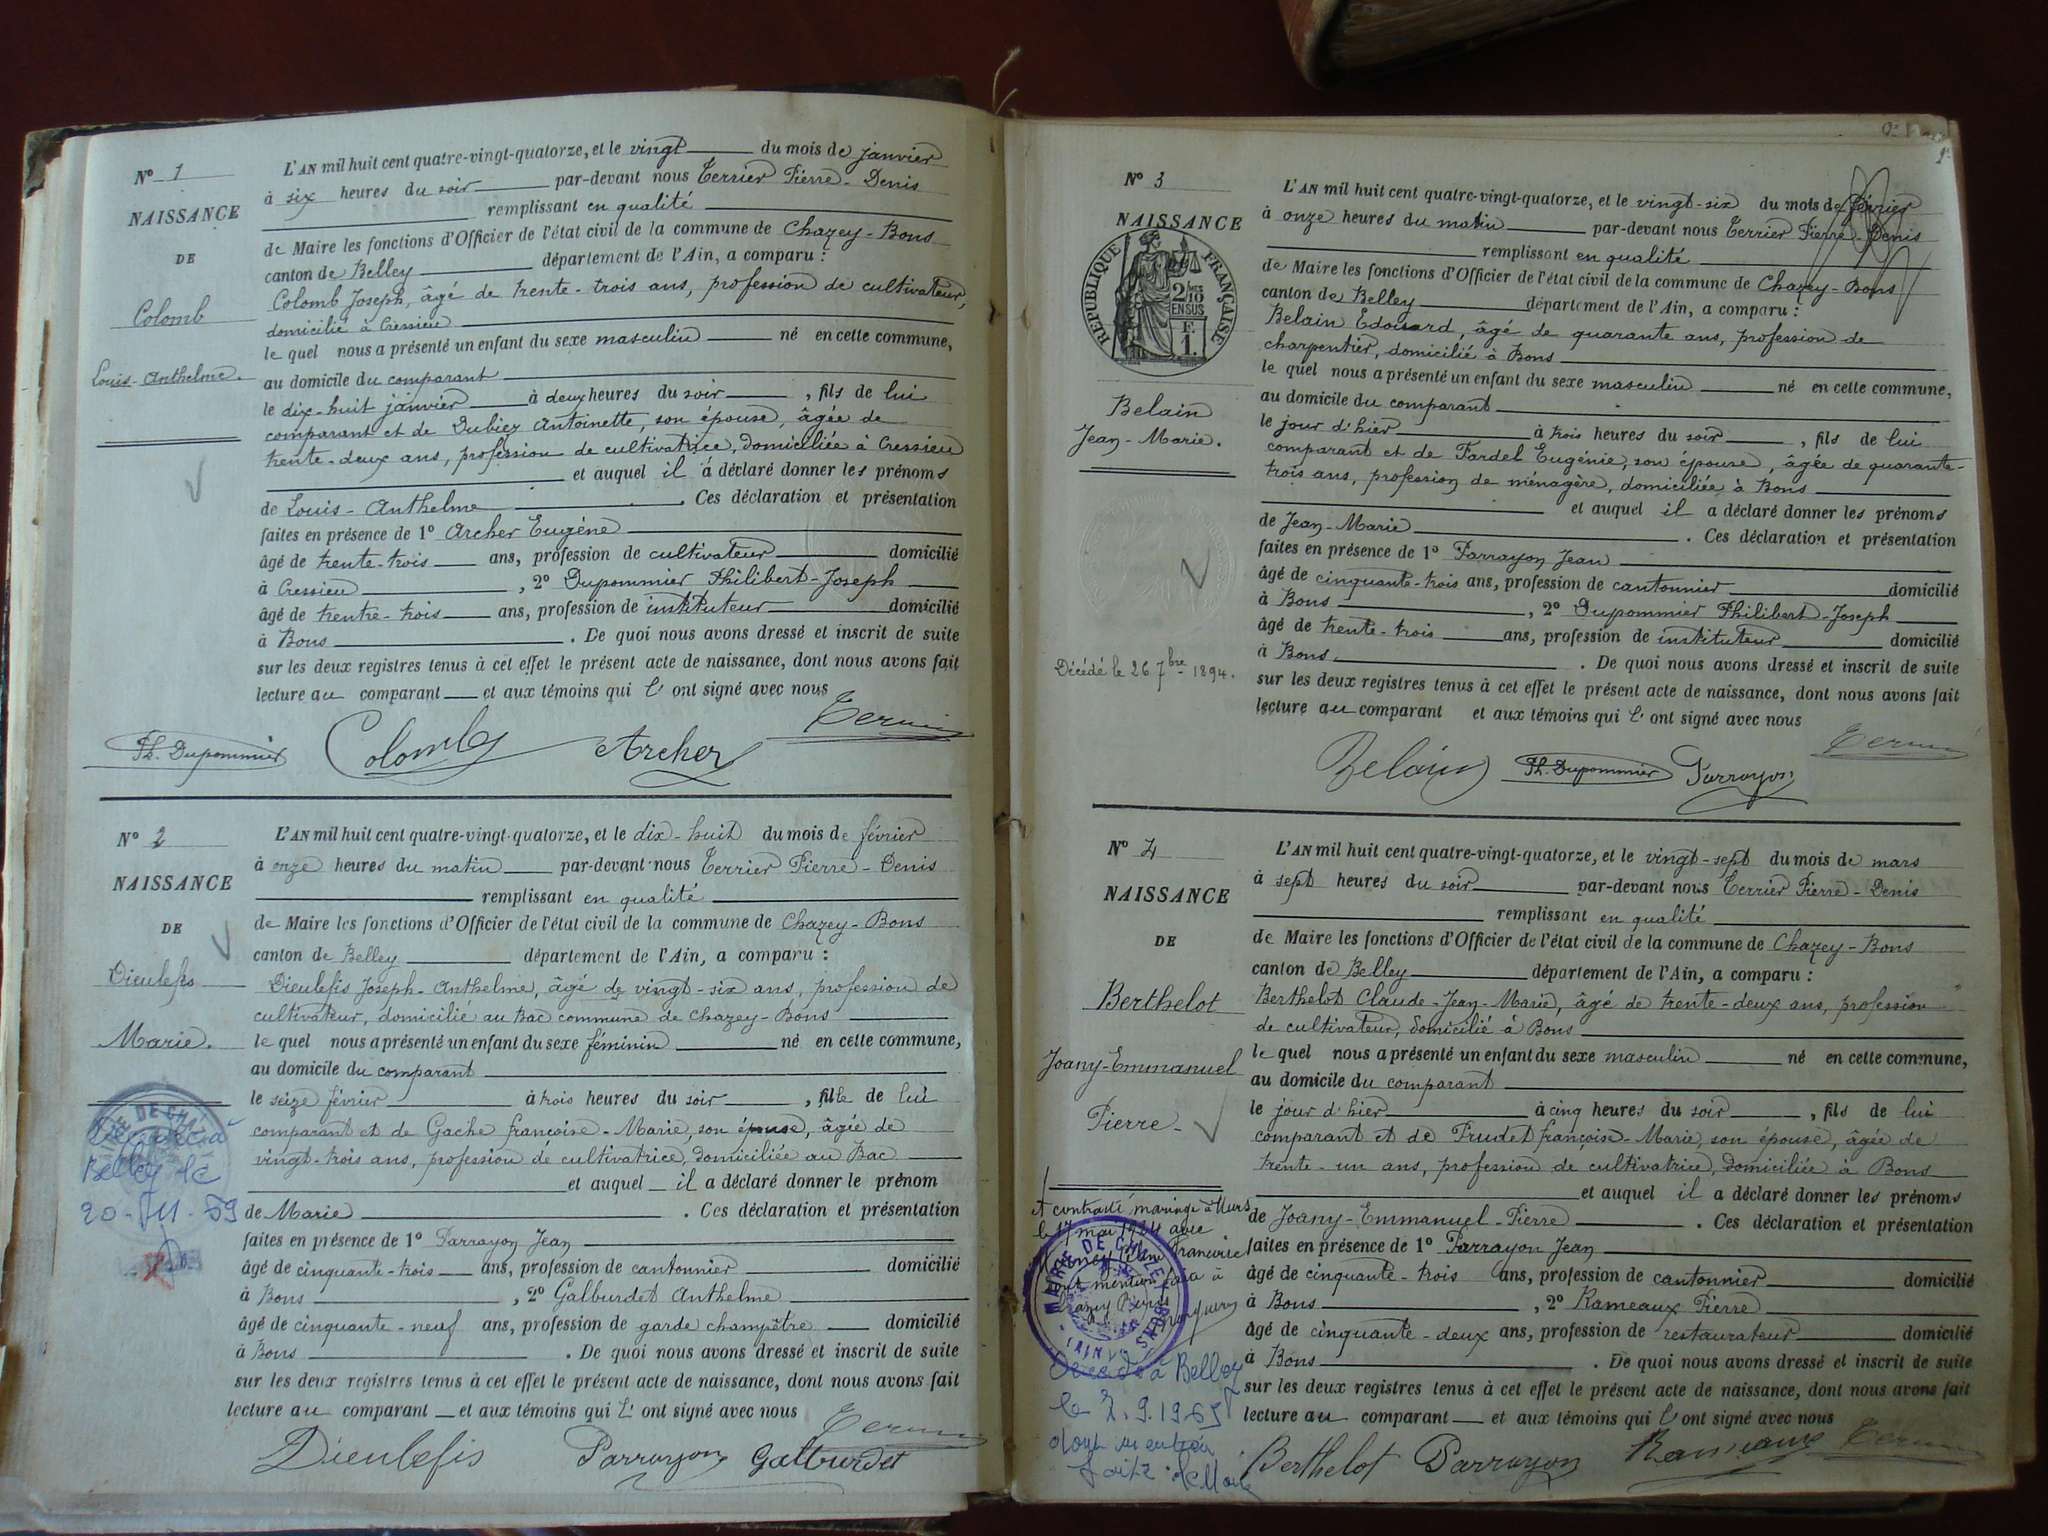 N° 1
NAISSANCE
DE
Colomb
Louis-Anthelme.
L'AN mil huit cent quatre-vingt-quatorze, et le vingt du mois de janvier
à six heures du soir par-devant nous Terrier Pierre-Denis
remplissant en qualité
de Maire les fonctions d'Officier de l'état civil de la commune de Chazey-Bons
canton de Belley département de l'Ain, a comparu :
Colomb Joseph, âgé de trente-trois ans, profession de cultivateur,
domicilié à Cressieu
le quel nous a présenté un enfant du sexe masculin né en cette commune,
au domicile du comparant
le dix-huit janvier à deux heures du soir, fils de lui
comparant et de Dubiez Antoinette, son épouse, âgée de
trente-deux ans, profession de cultivatrice, domiciliée à Cressieu
et auquel il a déclaré donner les prénoms
de Louis-Anthelme. Ces déclaration et présentation
faites en présence de 1° Archer Eugène
âgé de trente-trois ans, profession de cultivateur domicilié
à Cressieu, 2° Dupommier Philibert-Joseph
âgé de trente-trois ans, profession de instituteur domicilié
à Bons. De quoi nous avons dressé et inscrit de suite
sur les deux registres tenus à cet effet le présent acte de naissance, dont nous avons fait
lecture au comparant et aux témoins qui l'ont signé avec nous
Ph. Dupommier Colomb Archer
N° 2
NAISSANCE
DE
Dieulefis
Marie.
Belley le
L'AN mil huit cent quatre-vingt-quatorze, et le dix-huit du mois de février
à onze heures du matin par-devant nous Terrier Pierre-Denis
remplissant en qualité
de Maire les fonctions d'Officier de l'état civil de la commune de Chazey-Bons
canton de Belley département de l'Ain, a comparu :
Dieulefis Joseph-Anthelme, âgé de vingt-six ans, profession de
cultivateur, domicilié au Bac commune de Chazey-Bons
le quel nous a présenté un enfant du sexe féminin né en cette commune,
au domicile du comparant
le seize février à trois heures du soir, fille de lui
comparant et de Gache françoise-Marie, son épouse, âgée de
vingt-trois ans, profession de cultivatrice, domiciliée au Bac
et auquel il a déclaré donner le prénom
de Marie. Ces déclaration et présentation
faites en présence de 1° Parrayon Jean
âgé de cinquante-trois ans, profession de cantonnier domicilié
à Bons, 2° Galburdet Anthelme
âgé de cinquante-neuf ans, profession de garde champêtre domicilié
à Bons. De quoi nous avons dressé et inscrit de suite
sur les deux registres tenus à cet effet le présent acte de naissance, dont nous avons fait
lecture au comparant et aux témoins qui l'ont signé avec nous
Dieulefis Parrayon Galburdet
N° 3
NAISSANCE
RÉPUBLIQUE FRANÇAISE
2/10 EN SUS
F. 1.
Belain
Jean-Marie.
Décédé le 26 7bre 1894.
L'AN mil huit cent quatre-vingt-quatorze, et le vingt-six du mois de février
à onze heures du matin par-devant nous Terrier Pierre-Denis
remplissant en qualité
de Maire les fonctions d'Officier de l'état civil de la commune de Chazey-Bons
canton de Belley département de l'Ain, a comparu :
Belain Edouard, âgé de quarante ans, profession de
charpentier, domicilié à Bons
le quel nous a présenté un enfant du sexe masculin né en cette commune,
au domicile du comparant
le jour d'hier à trois heures du soir, fils de lui
comparant et de Fardel Eugénie, son épouse, âgée de quarante-
trois ans, profession de ménagère, domiciliée à Bons
et auquel il a déclaré donner les prénoms
de Jean-Marie. Ces déclaration et présentation
faites en présence de 1° Parrayon Jean
âgé de cinquante-trois ans, profession de cantonnier domicilié
à Bons, 2° Dupommier Philibert-Joseph
âgé de trente-trois ans, profession de instituteur domicilié
à Bons. De quoi nous avons dressé et inscrit de suite
sur les deux registres tenus à cet effet le présent acte de naissance, dont nous avons fait
lecture au comparant et aux témoins qui l'ont signé avec nous
Belain Ph. Dupommier Parrayon
N° 4
NAISSANCE
DE
Berthelot
Joany-Emmanuel
Pierre
A contracté mariage à
le 17 mai 1924 avec
MAIRIE DE CHAZEY-BONS (AIN)
Décédé à Belley
dont mention
faite
L'AN mil huit cent quatre-vingt-quatorze, et le vingt-sept du mois de mars
à sept heures du soir par-devant nous Terrier Pierre-Denis
remplissant en qualité
de Maire les fonctions d'Officier de l'état civil de la commune de Chazey-Bons
canton de Belley département de l'Ain, a comparu :
Berthelot Claude-Jean-Marie, âgé de trente-deux ans, profession
de cultivateur, domicilié à Bons
le quel nous a présenté un enfant du sexe masculin né en cette commune,
au domicile du comparant
le jour d'hier à cinq heures du soir, fils de lui
comparant et de Prudet françoise-Marie, son épouse, âgée de
trente-un ans, profession de cultivatrice, domiciliée à Bons
et auquel il a déclaré donner les prénoms
de Joany-Emmanuel-Pierre. Ces déclaration et présentation
faites en présence de 1° Parrayon Jean
âgé de cinquante-trois ans, profession de cantonnier domicilié
à Bons, 2° Rameaux Pierre
âgé de cinquante-deux ans, profession de restaurateur domicilié
à Bons. De quoi nous avons dressé et inscrit de suite
sur les deux registres tenus à cet effet le présent acte de naissance, dont nous avons fait
lecture au comparant et aux témoins qui l'ont signé avec nous
Berthelot Parrayon Rameaux